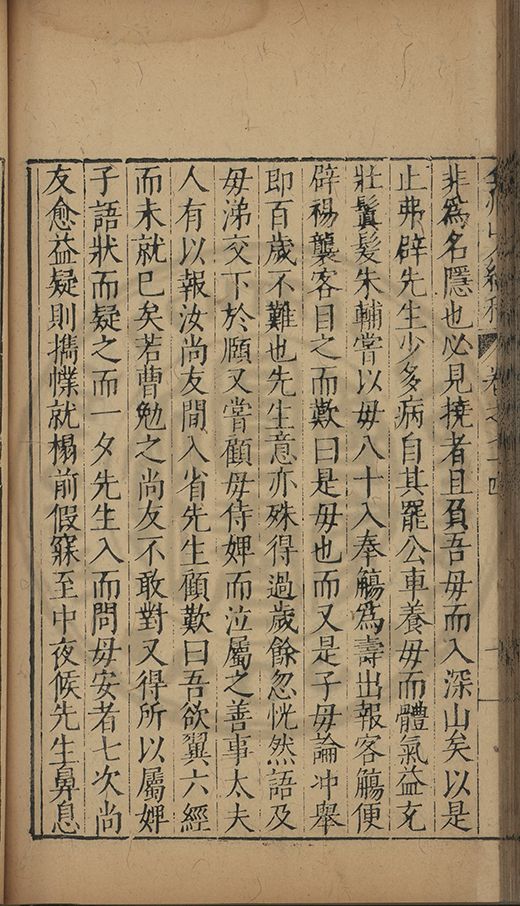 非為名隱也必見撓者且負吾母而入深山矣以是
止弗辟先生少多病自其罷公車養母而體氣益充
壯鬒髮朱輔嘗以母八十入奉觴為壽出報客觴便
辟裼襲客目之而歎曰是母也而又是子母論冲舉
即百歲不難也先生意亦殊得過歲餘忽恍然語及
母涕交下於頤又嘗顧母侍婢而泣屬之善事太夫
人有以報汝尚友間入省先生顧歎曰吾欲翼六經
而未就已矣若曹勉之尚友不敢對又得所以屬婢
子語狀而疑之而一夕先生入而問母安者七次尚
友愈益疑則攜襆就榻前假寐至中夜候先生鼻息